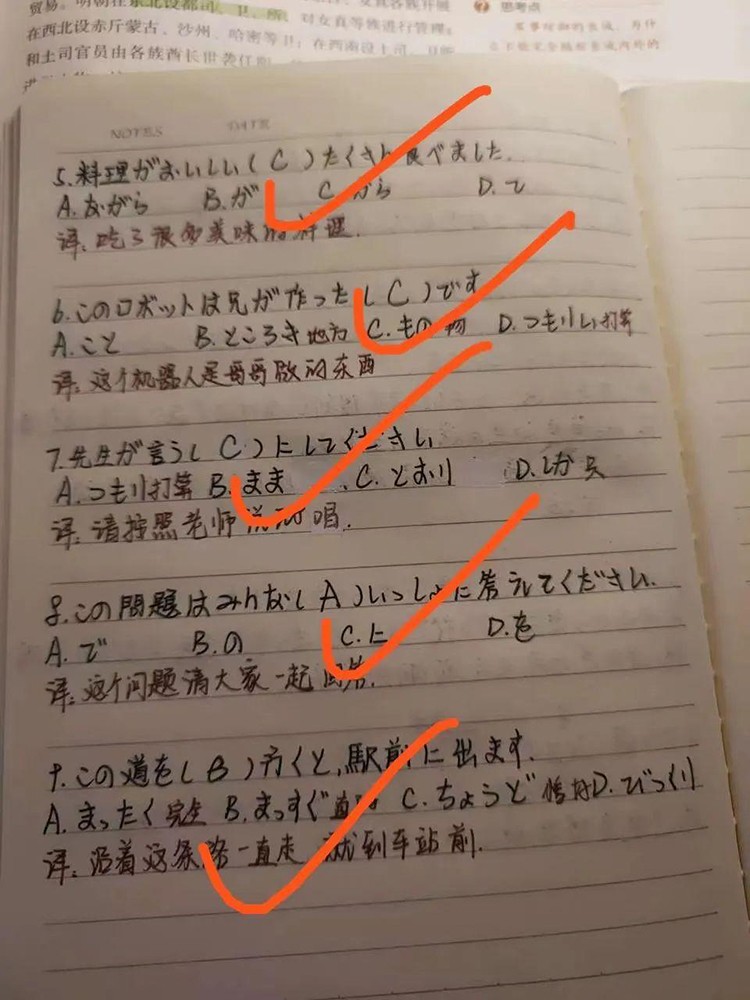 贸易。明朝在东北设都司、卫、所，对女真等族进行管理；
在西北设赤斤蒙古、沙州、哈密等卫；在西南设土司、卫所
和土司官员由各族酋长世袭任
思考点
NOTES DATE
5.料理がおいしい(C)たくさん食べました.
A.ながら B.が C.から D.て
译:吃了很多美味的料理.
6.このロボットは兄が作った(C)です
A.こと B.ところ 地方 C.もの 物 D.つもり 打算
译:这个机器人是哥哥做的东西
7.先生が言う(C)にしてください
A.つもり打算 B.まま C.とおり D.しか只
译:请按照老师 唱.
8.この問題はみんな(A)いっしょに答えてください.
A.で B.の C.に D.を
译:这个问题请大家一起回答.
9.この道を(B)行くと,駅前に出ます.
A.まったく完全 B.まっすぐ直 C.ちょうど 恰好D.びっくり
译:沿着这条路一直走 就到车站前.